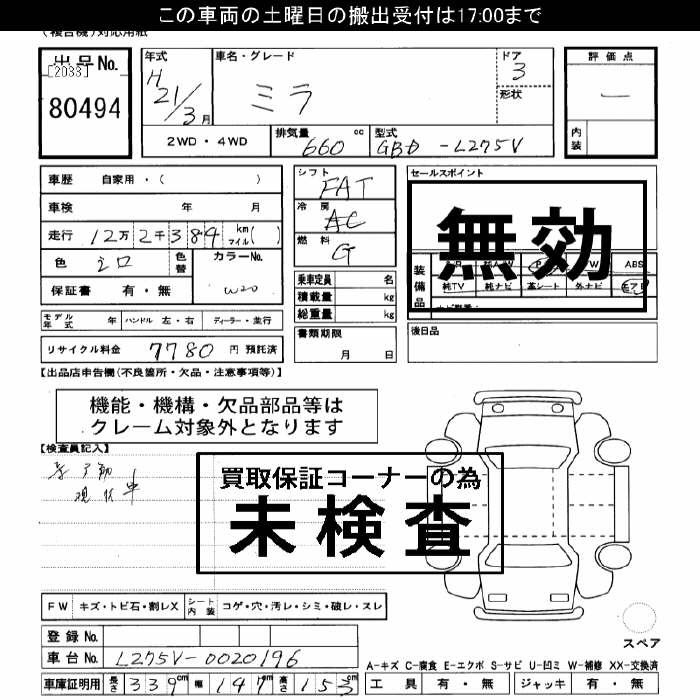 この車両の土曜日の搬出受付は17:00まで
(複合機)対応用紙
出品No.
[2033]
80494
年式
H 21/3月
車名・グレード
ミラ
ドア
3
形状
評価点
内装
2WD・4WD
排気量 660 cc
型式 GBD-L275V
車歴 自家用・( )
車検 年 月
走行 12万2千384 km マイル( )
色 シロ 色替
カラーNo. W20
保証書 有・無
シフト FAT
冷房 AC
燃料 G
乗車定員 名
積載量 kg
総重量 kg
書類期限
月 日
セールスポイント
無効
装備品
ABS
純TV 純ナビ 革シート 外ナビ エアB
後日品
モデル年式 年 ハンドル 左・右 ディーラー・並行
リサイクル料金 7780 円 預託済
【出品店申告欄(不良箇所・欠品・注意事項等)】
機能・機構・欠品部品等は
クレーム対象外となります
【検査員記入】
現状車
買取保証コーナーの為
未検査
FW キズ・トビ石・割レX シート内装 コゲ・穴・汚レ・シミ・破レ・スレ
登録No.
車台No. L275V-0020196
スペア
A-キズ C-腐食 E-エクボ S-サビ U-凹ミ W-補修 XX-交換済
車庫証明用 長さ 339cm 幅 147cm 高さ 153cm
工具 有・無 ジャッキ 有・無